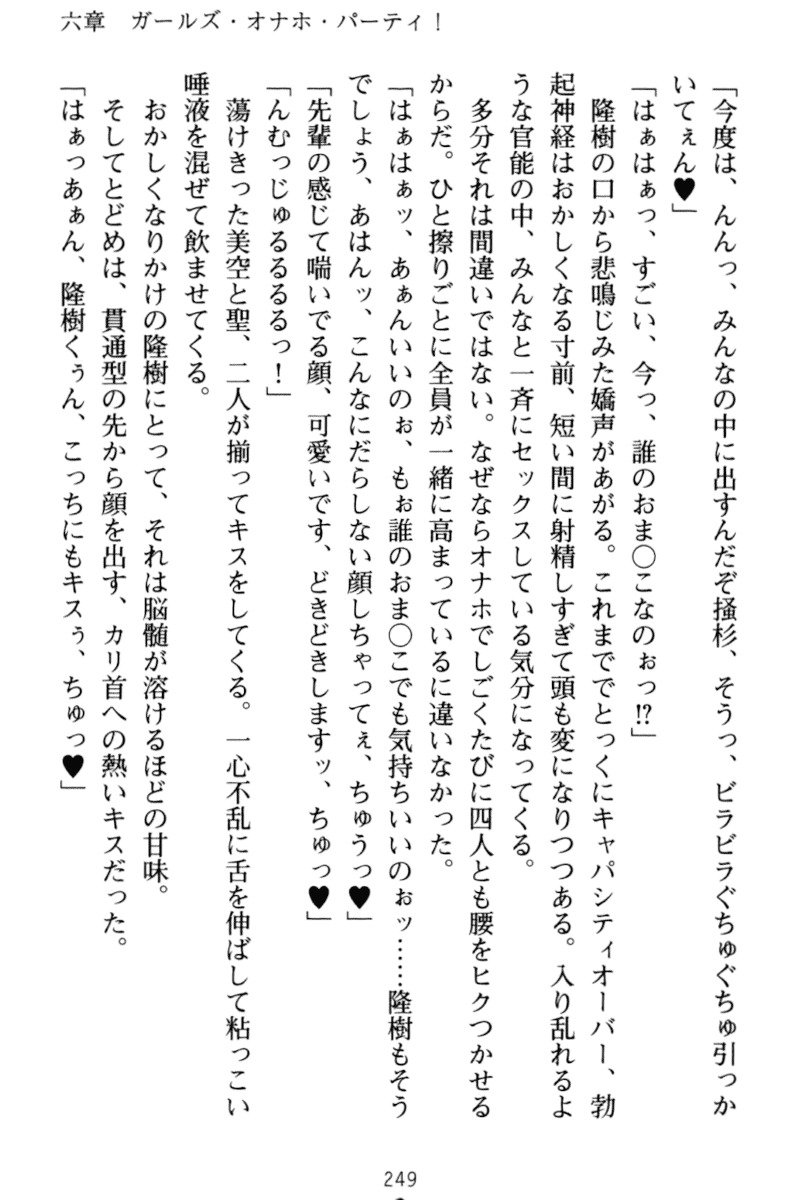 六章　ガールズ・オナホ・パーティ！
「今度は、んんっ、みんなの中に出すんだぞ掻杉、そうっ、ビラビラぐちゅぐちゅ引っか
いてぇん♥」
「はぁはぁっ、すごい、今っ、誰のおま〇こなのぉっ!?」
　隆樹の口から悲鳴じみた嬌声があがる。これまででとっくにキャパシティオーバー、勃
起神経はおかしくなる寸前、短い間に射精しすぎて頭も変になりつつある。入り乱れるよ
うな官能の中、みんなと一斉にセックスしている気分になってくる。
　多分それは間違いではない。なぜならオナホでしごくたびに四人とも腰をヒクつかせる
からだ。ひと擦りごとに全員が一緒に高まっているに違いなかった。
「はぁはぁッ、あぁんいいのぉ、もぉ誰のおま〇こでも気持ちいいのぉッ……隆樹もそう
でしょう、あはんッ、こんなにだらしない顔しちゃってぇ、ちゅうっ♥」
「先輩の感じて喘いでる顔、可愛いです、どきどきしますッ、ちゅっ♥」
「んむっじゅるるるるっ！」
　蕩けきった美空と聖、二人が揃ってキスをしてくる。一心不乱に舌を伸ばして粘っこい
唾液を混ぜて飲ませてくる。
　おかしくなりかけの隆樹にとって、それは脳髄が溶けるほどの甘味。
　そしてとどめは、貫通型の先から顔を出す、カリ首への熱いキスだった。
「はぁっあぁん、隆樹くぅん、こっちにもキスぅ、ちゅっ♥」
249